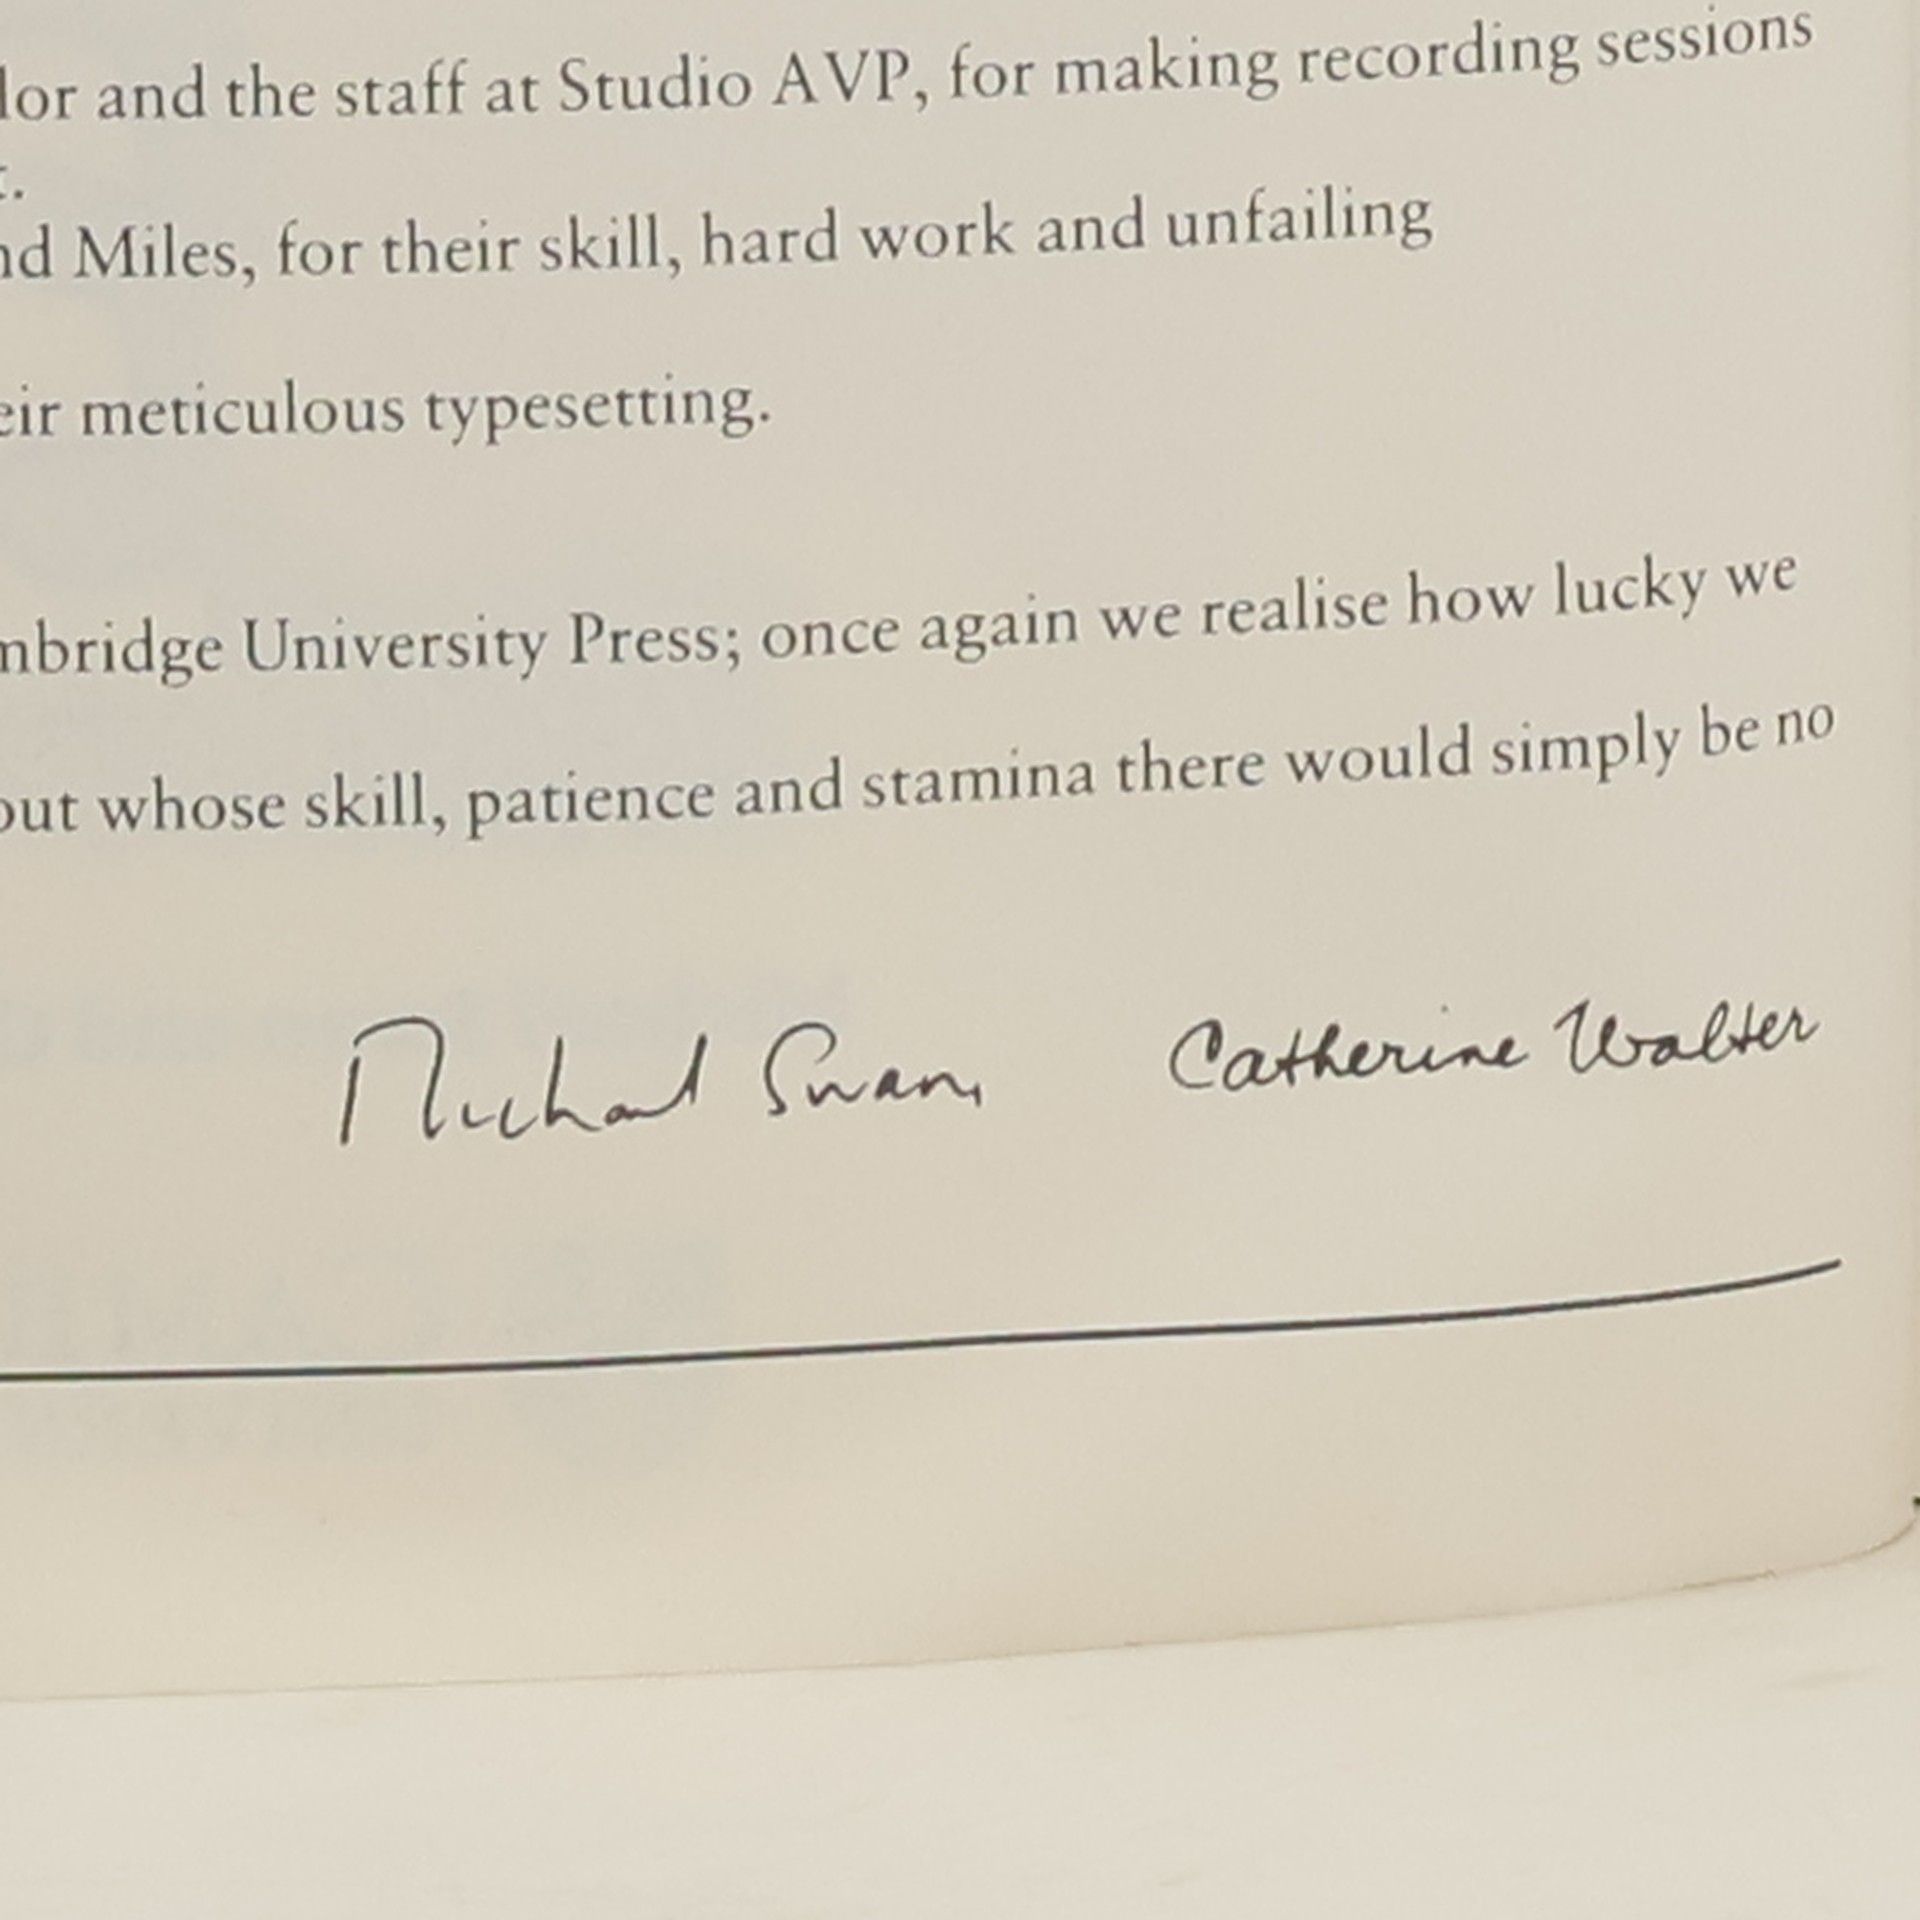 lor and the staff at Studio AVP, for making recording sessions
t.
nd Miles, for their skill, hard work and unfailing
eir meticulous typesetting.
mbridge University Press; once again we realise how lucky we
out whose skill, patience and stamina there would simply be no
Michael Swan Catherine Walter